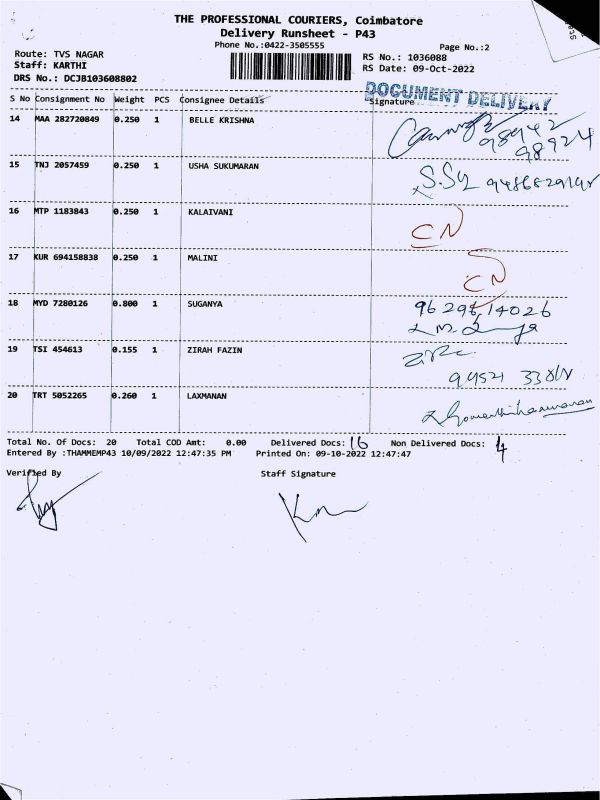 THE PROFESSIONAL COURIERS, Coimbatore
Delivery Runsheet - P43
Phone No.:0422-3505555
Page No.:2
Route: TVS NAGAR
RS No.: 1036088
Staff: KARTHI
RS Date: 09-Oct-2022
DRS No.: DCJB103608802
DOCUMENT DELIVERY
S No Consignment No Weight PCS Consignee Details Signature
14 MAA 282720849 0.250 1 BELLE KRISHNA
98942
98924
15 TNJ 2057459 0.250 1 USHA SUKUMARAN
16 MTP 1183843 0.250 1 KALAIVANI CN
17 KUR 694158838 0.250 1 MALINI CN
18 MYD 7280126 0.800 1 SUGANYA 96296 14026
19 TSI 454613 0.155 1 ZIRAH FAZIN
20 TRT 5052265 0.260 1 LAXMANAN
Total No. Of Docs: 20 Total COD Amt: 0.00 Delivered Docs: 16 Non Delivered Docs: 4
Entered By :THAMMEMP43 10/09/2022 12:47:35 PM Printed On: 09-10-2022 12:47:47
Verified By Staff Signature